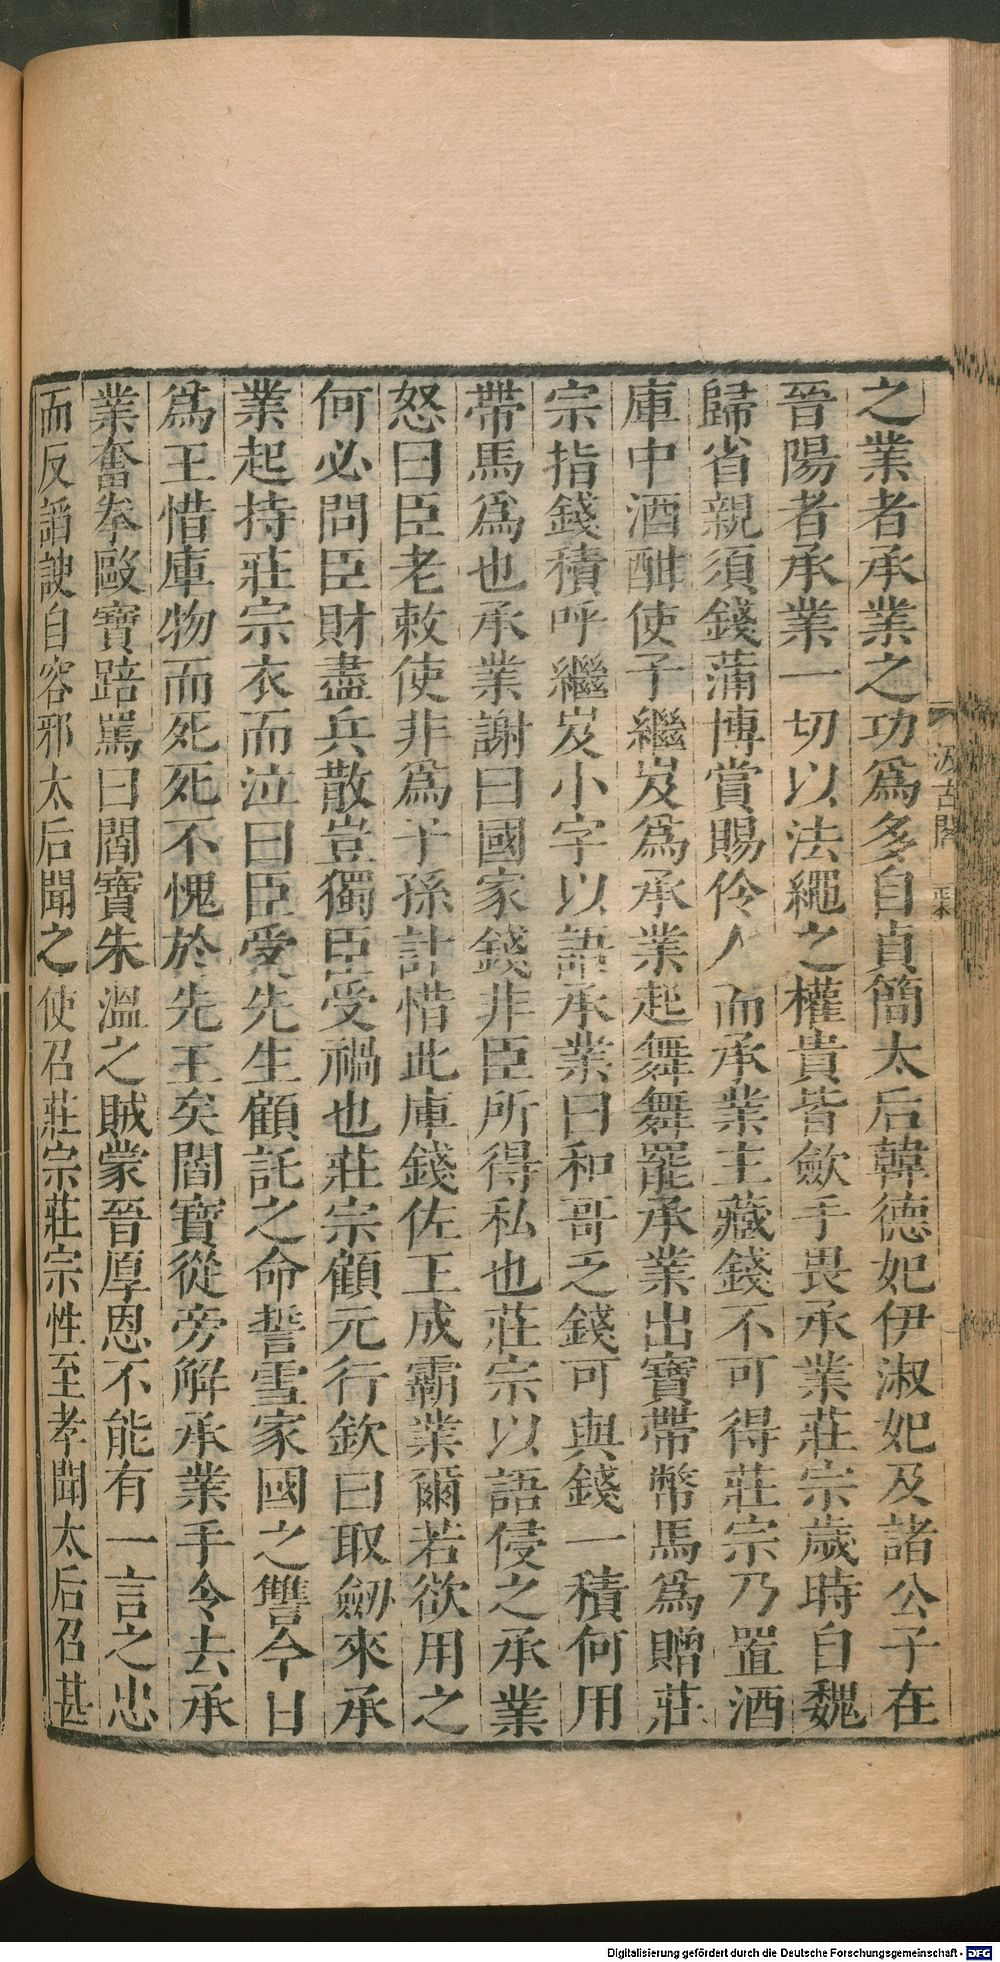 之業者承業之功爲多自貞簡太后韓德妃伊淑妃及諸公子在
晉陽者承業一切以法繩之權貴皆斂手畏承業莊宗歲時自魏
歸省親須錢蒲博賞賜伶人而承業主藏錢不可得莊宗乃置酒
庫中酒酣使子繼岌爲承業起舞舞罷承業出寶帶幣馬爲贈莊
宗指錢積呼繼岌小字以語承業曰和哥乏錢可與錢一積何用
帶馬爲也承業謝曰國家錢非臣所得私也莊宗以語侵之承業
怒曰臣老敕使非爲子孫計惜此庫錢佐王成霸業爾若欲用之
何必問臣財盡兵散豈獨臣受禍也莊宗顧元行欽曰取劒來承
業起持莊宗衣而泣曰臣受先王顧託之命誓雪家國之讐今日
爲王惜庫物而死死不愧於先王矣閻寶從旁解承業手令去承
業奮拳毆寶踣罵曰閻寶朱溫之賊蒙晉厚恩不能有一言之忠
而反諂諛自容邪太后聞之使召莊宗莊宗性至孝聞太后召甚
汲古閣
Digitalisierung gefördert durch die Deutsche Forschungsgemeinschaft - DFG